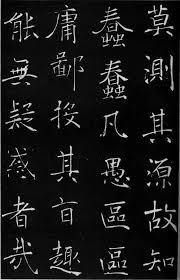 莫測其源故知
蠢蠢凡愚區區
庸鄙投其旨趣
能無疑惑者哉